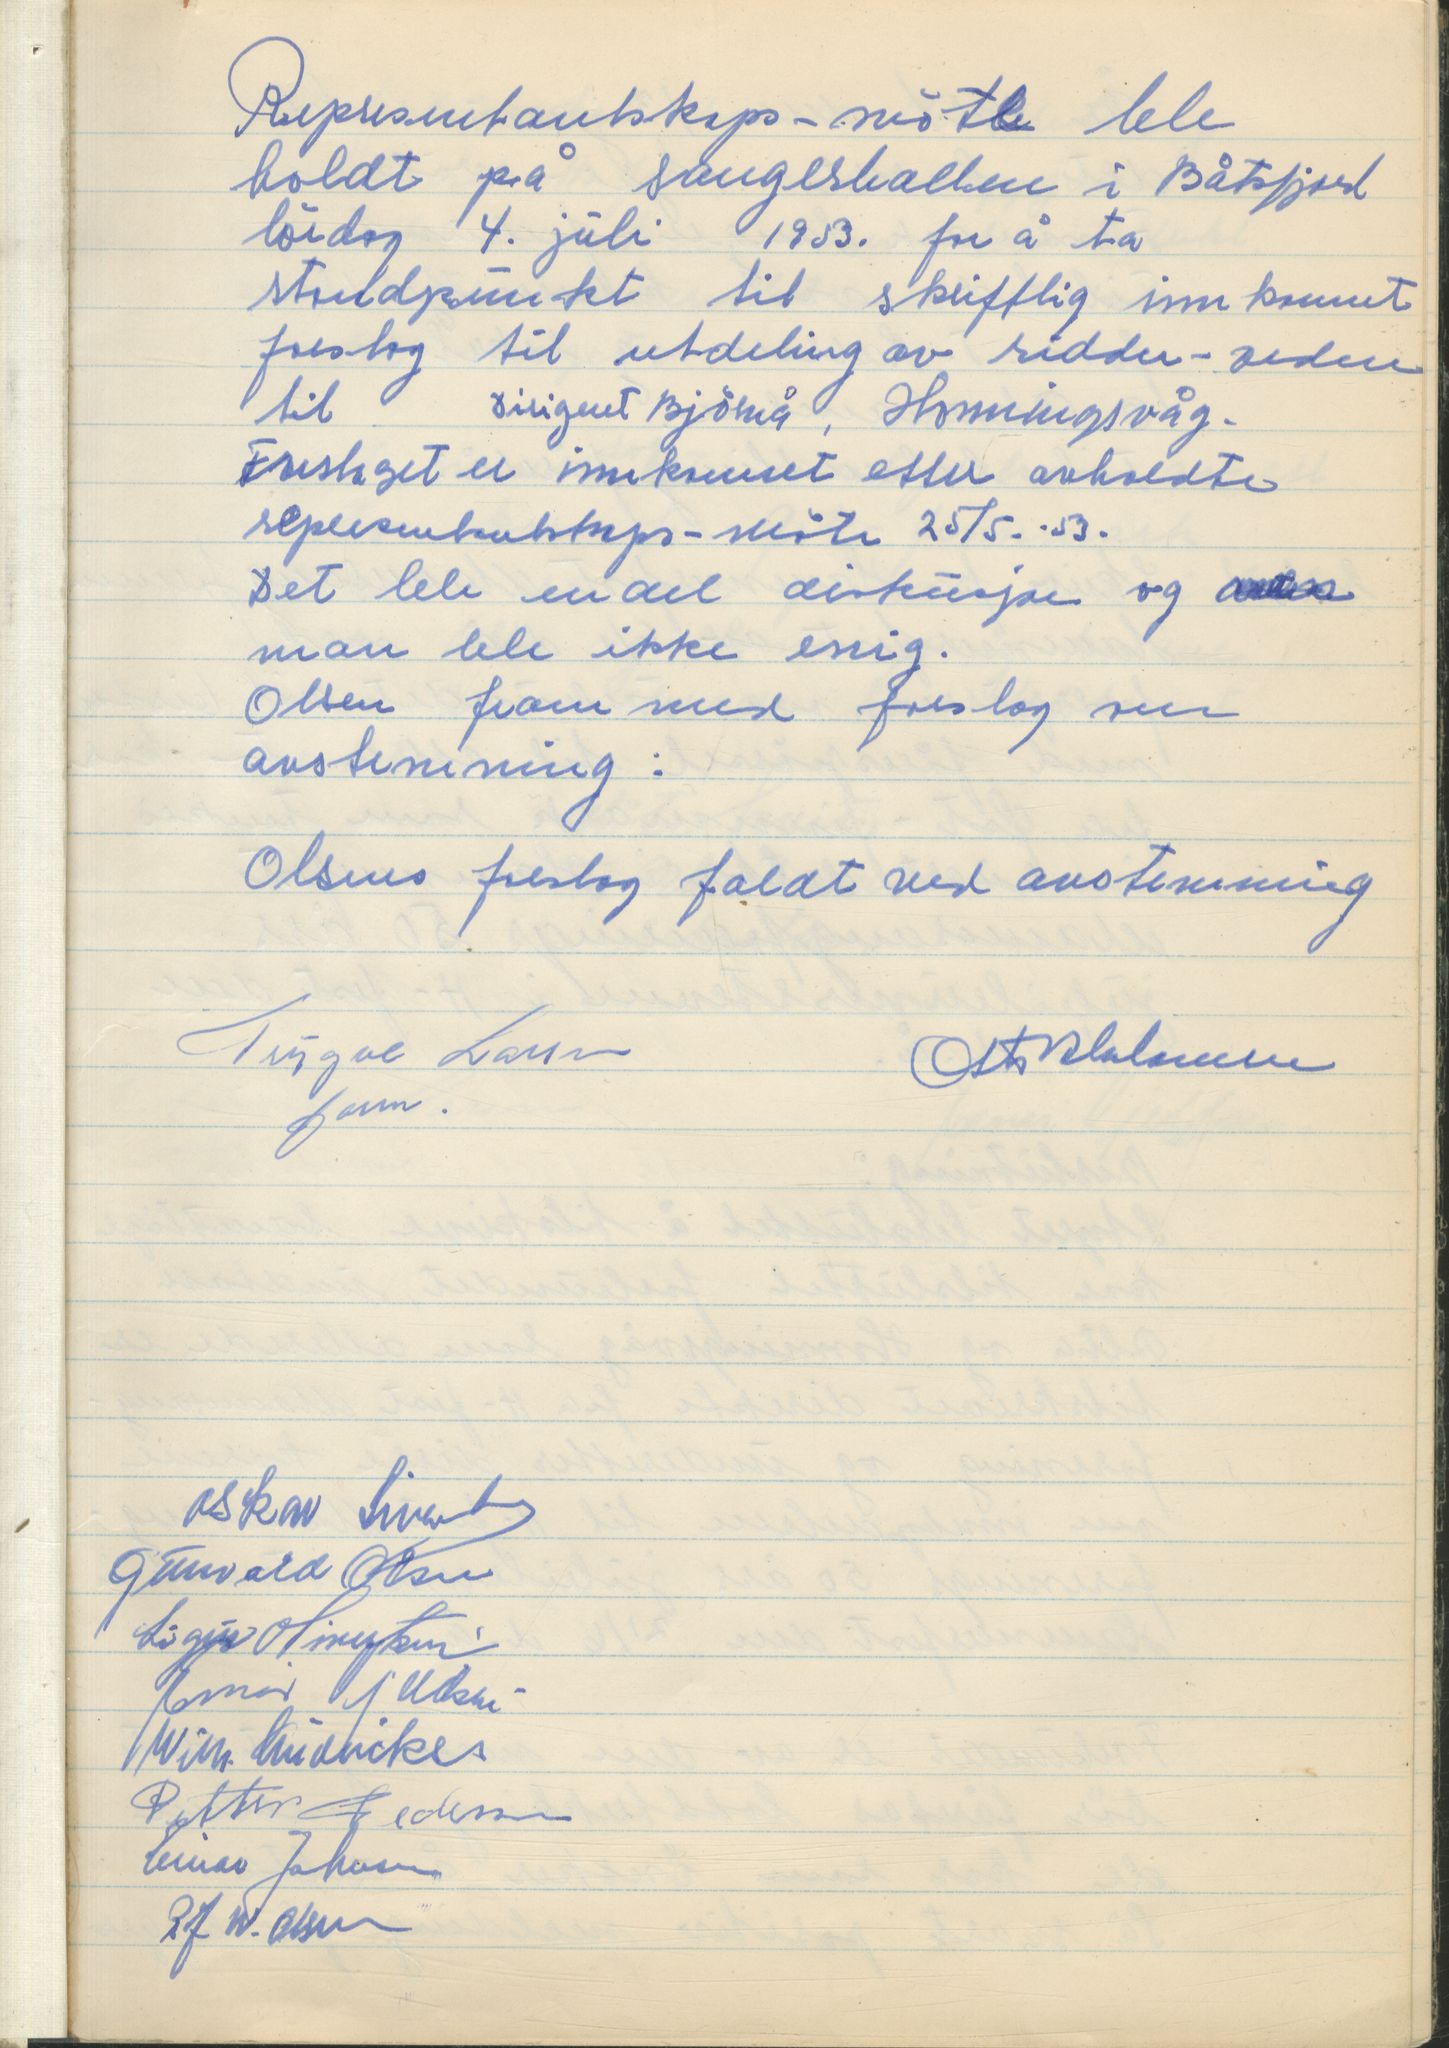 Representantskaps-møte ble
holdt på Sangerhallen i Båtsfjord
lördag 4. júli 1953. for å ta
standpúnkt til skriftlig innkommet
forslag til utdeling av ridder-orden
til Dirigent Björnå, Honningsvåg.
Forslaget er innkommet etter avholdte
representantskaps-möte 25/5.-53.
Det ble endel diskúsjon og
man ble ikke enig.
Olsen fram med forslag om
avstemming:
Olsens forslag faldt ved avstemming
Trygve Larsen
form.
Oskar
Gúnvald Olsen
Petter Pedersen
Einar Johnsen
W. Olsen